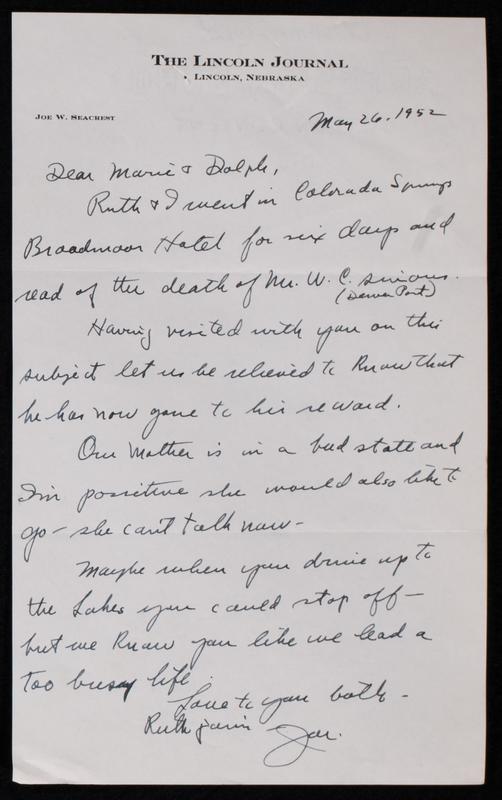 THE LINCOLN JOURNAL
LINCOLN, NEBRASKA
JOE W. SEACREST
May 26, 1952
Dear Marie & Dolph,
Ruth & I went in Colorado Springs
Broadmoor Hotel for six days and
read of the death of Mr. W. C.
(Denver Post)
Having visited with you on this
subject let us be relieved to know that
he has now gone to his reward.
Our Mother is in a bad state and
I'm positive she would also like to
go - she can't talk now -
Maybe when you drive up to
the Lakes you could stop off -
but we know you like we lead a
too busy life.
Love to you both -
Ruth joins Joe.